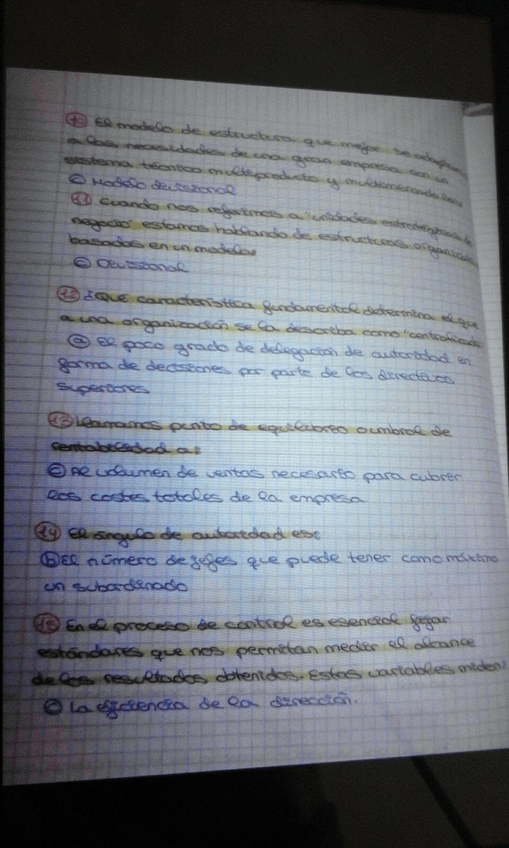 10 El modelo de estructura que mejor se adapta
a las necesidades de una gran empresa con un
sistema técnico multiproducto y multimercado será
c Modelo divisional
11 Cuando nos referimos a "unidades estratégicas de
negocio" estamos hablando de estructuras organizativas
basadas en un modelo:
c Divisional
12 ¿Qué característica fundamental determina el que
a una organización se la describa como "centralizada
a El poco grado de delegación de autoridad en
forma de decisiones por parte de los directivos
superiores
13 Llamamos punto de equilibrio o umbral de
rentabilidad a:
c Al volumen de ventas necesario para cubrir
los costes totales de la empresa
14 El ángulo de autoridad es:
b El número de jefes que puede tener como máximo
un subordinado
15 En el proceso de control es esencial fijar
estándares que nos permitan medir el alcance
de los resultados obtenidos. Estas variables miden:
c La eficiencia de la dirección.